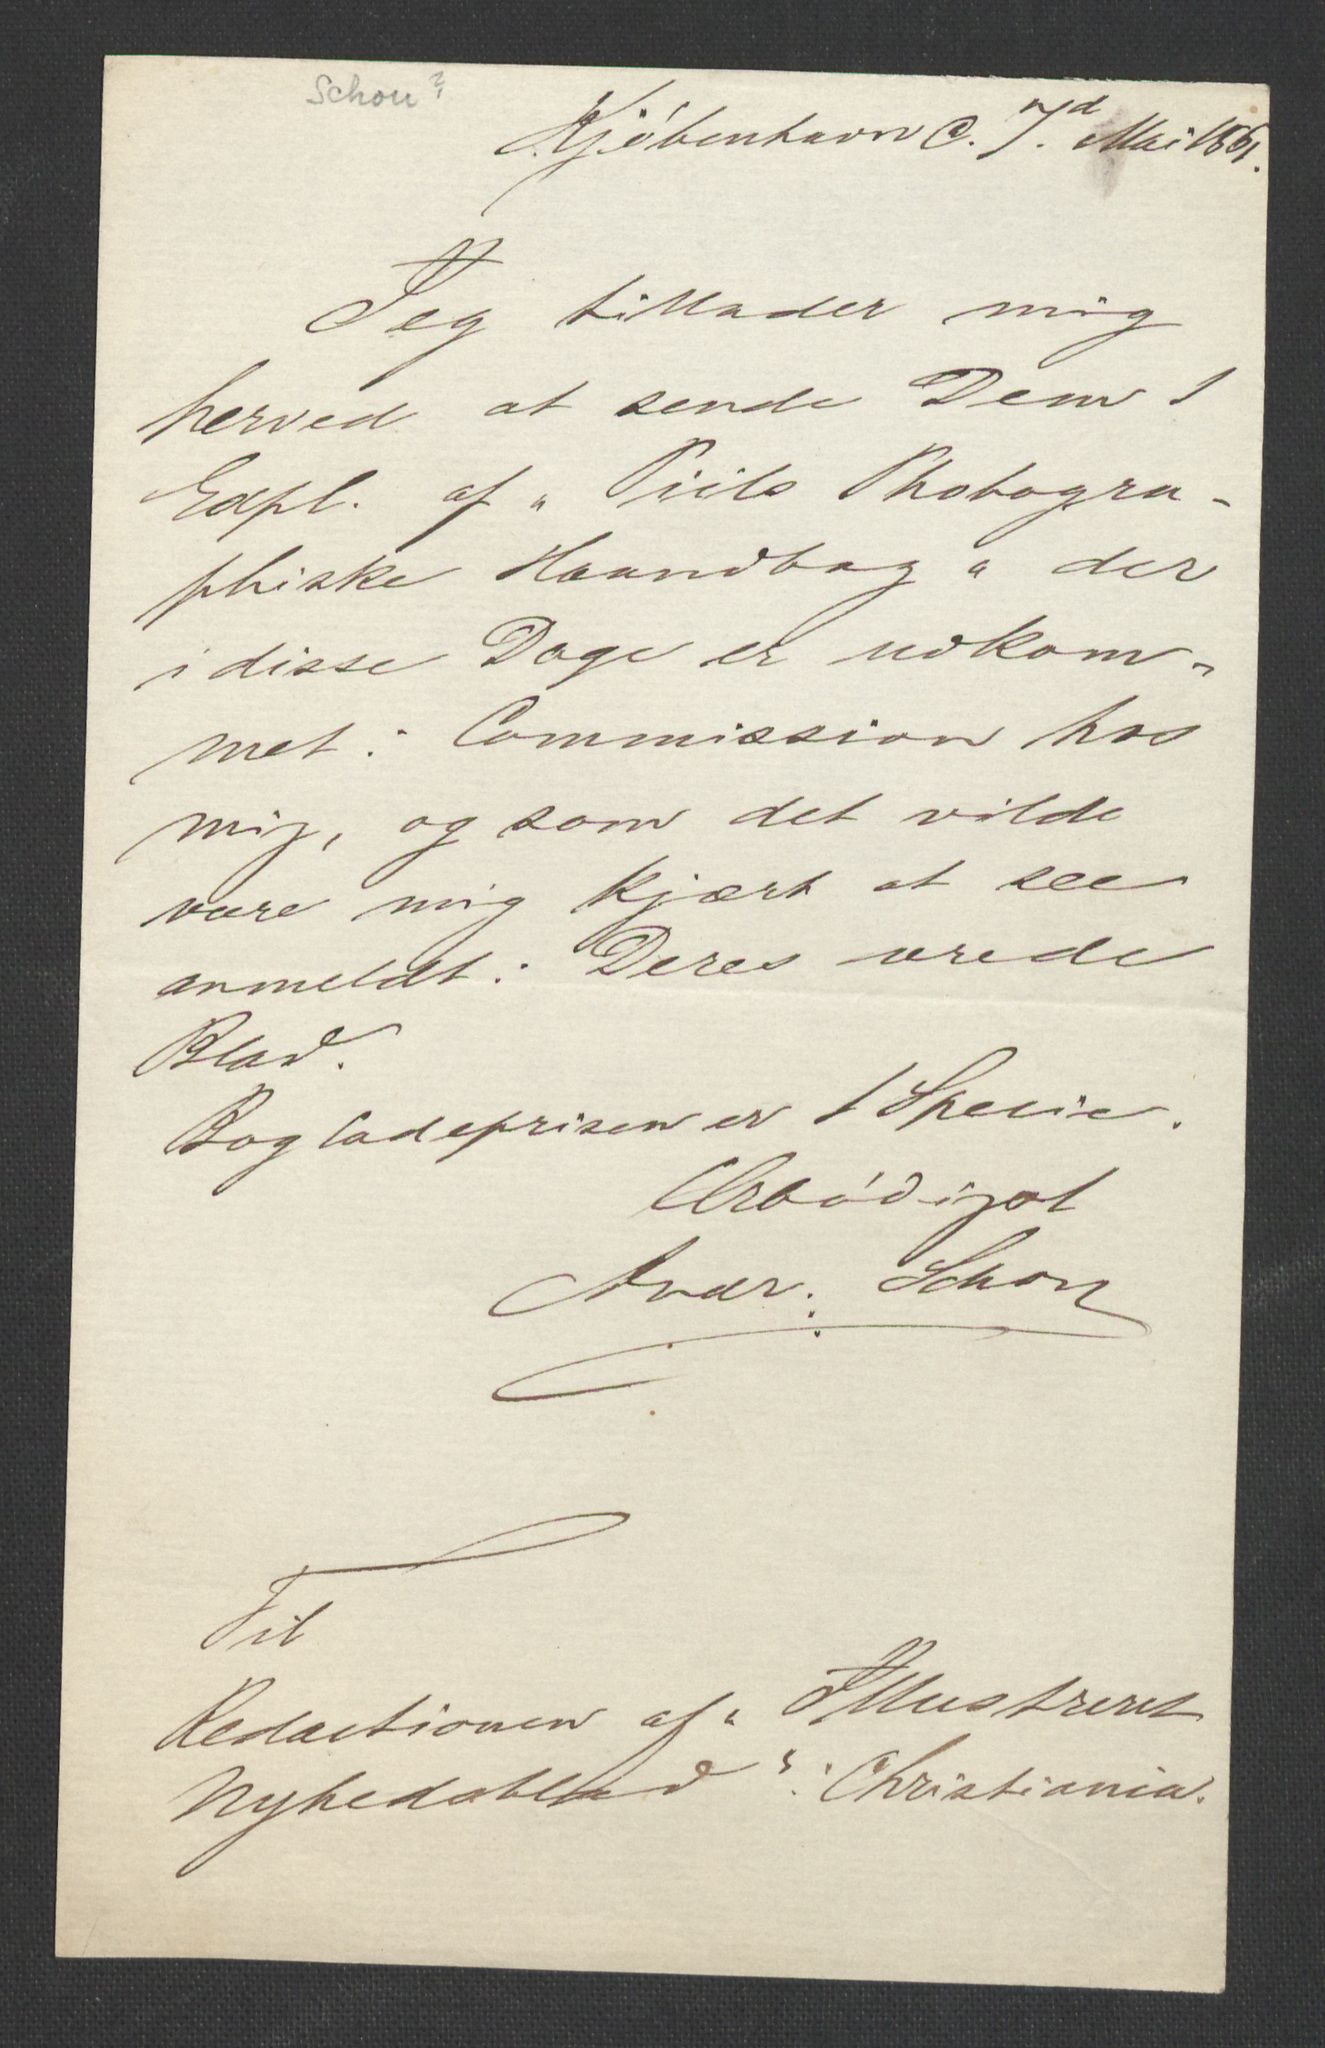 Schou?
Kjöbenhavn C. 7d. Mai 1861.
Jeg tillader mig
herved at sende Dem 1
Expl. af "Piils Photogra-
phiske Haandbog" der
i disse Dage er udkom-
met i Commission hos
mig, og som det vilde
være mig kjært at see
anmeldt i Deres ærede
Blad.
Bogladeprisen er 1 Specie.
Ærbödigst
Andr. Schou
Til
Redactionen af "Illustreret
Nyhedsblad" i Christiania.